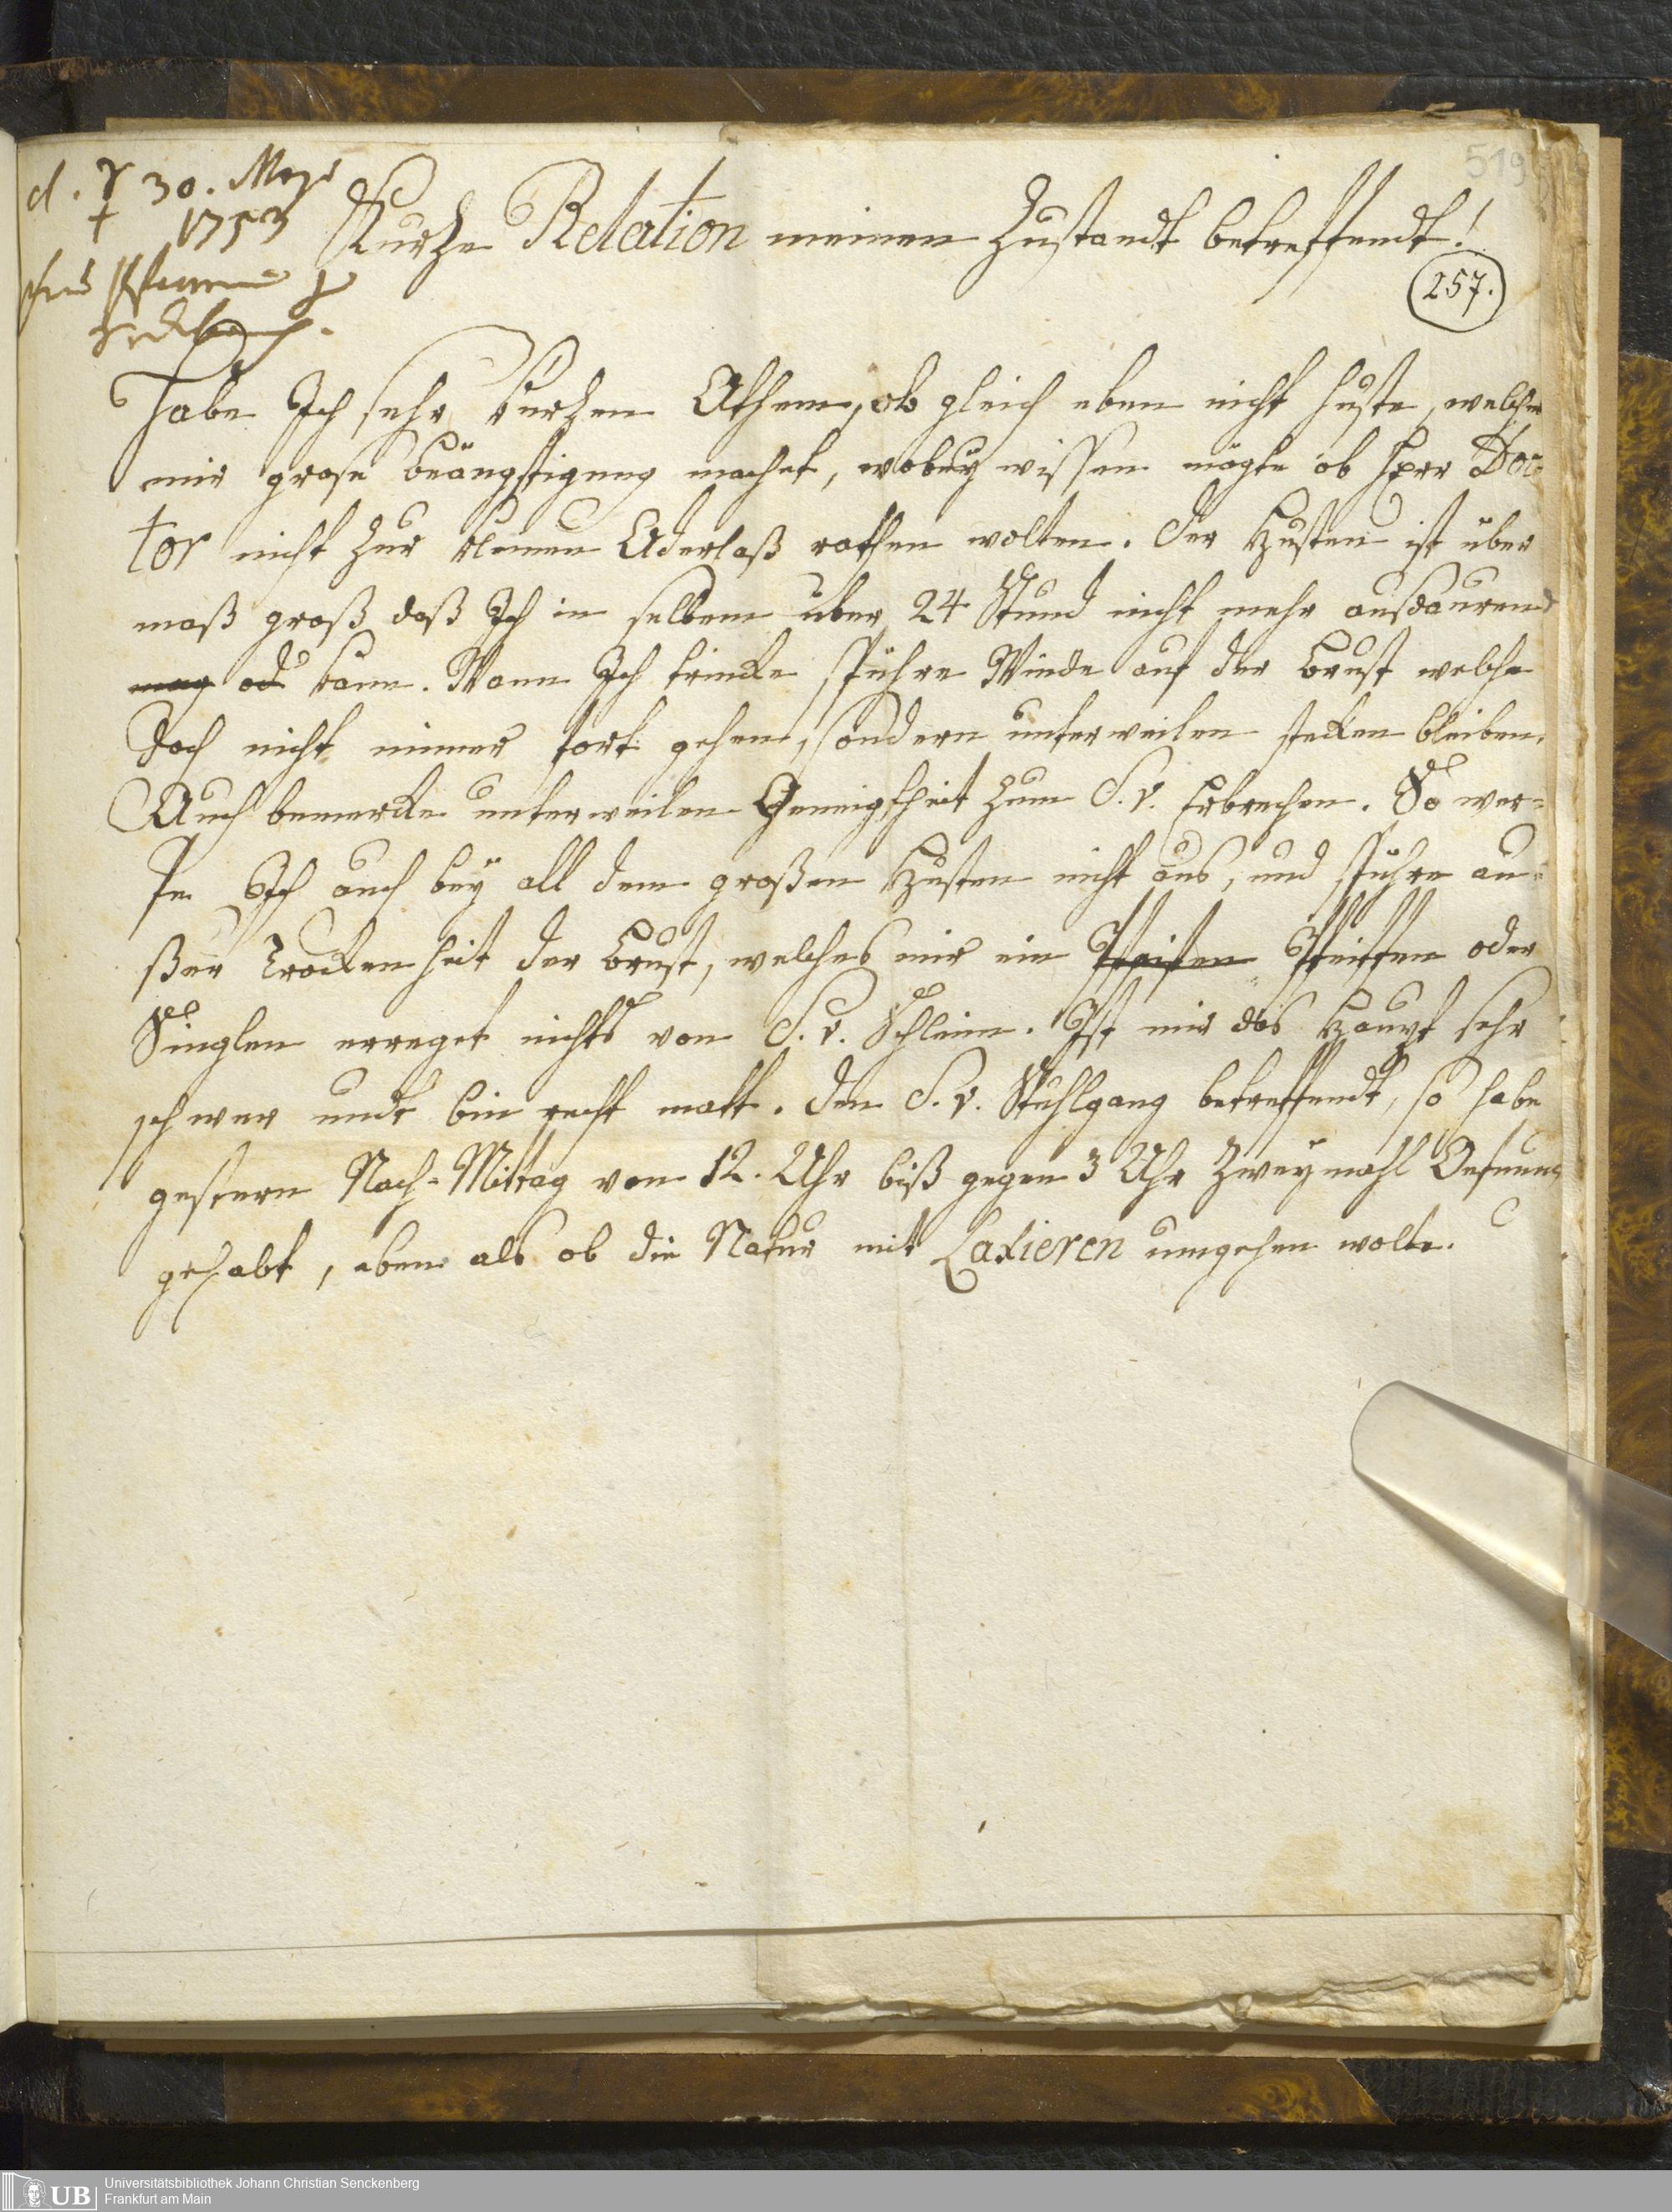 519
d. ☿ 30. Maji
1753
Kurze Relation meinen Zustandt betreffendt!
257.
Habe Ich sehr kurzen Athem, ob gleich eben nicht huste, welcher
mir grose beängstigung machet, wobey wissen mögte ob Herr Doc=
tor nicht zur kleinen Aderlaß rathen wolten. Der Husten ist über
maß groß daß Ich in selbem über 24 Stund nicht mehr ausdauren
mag od kann. Wann Ich trincke spühre Winde auf der Brust welche
doch nicht immer fort gehen, sondern unterweilen stecken bleiben.
Auch bemercke unterweilen Geneigtheit zum S. v. Erbrechen. So wer=
fe Ich auch bey all dem großen Husten nicht aus, und spühre au=
ßer Trockenheit der Brust, welches mir ein Pfeiffen oder
Singlen erreget nichts von S. v. Schleim. Ist mir das Haupt sehr
schwer undt bin recht matt. Den S. v. Stuhlgang betreffendt, so habe
gestern Nach-Mittag von 12. Uhr biß gegen 3 Uhr Zweymahl Oefnung
gehabt, eben als ob die Natur mit Laxieren umgehen wolte.
UB
Universitätsbibliothek Johann Christian Senckenberg
Frankfurt am Main